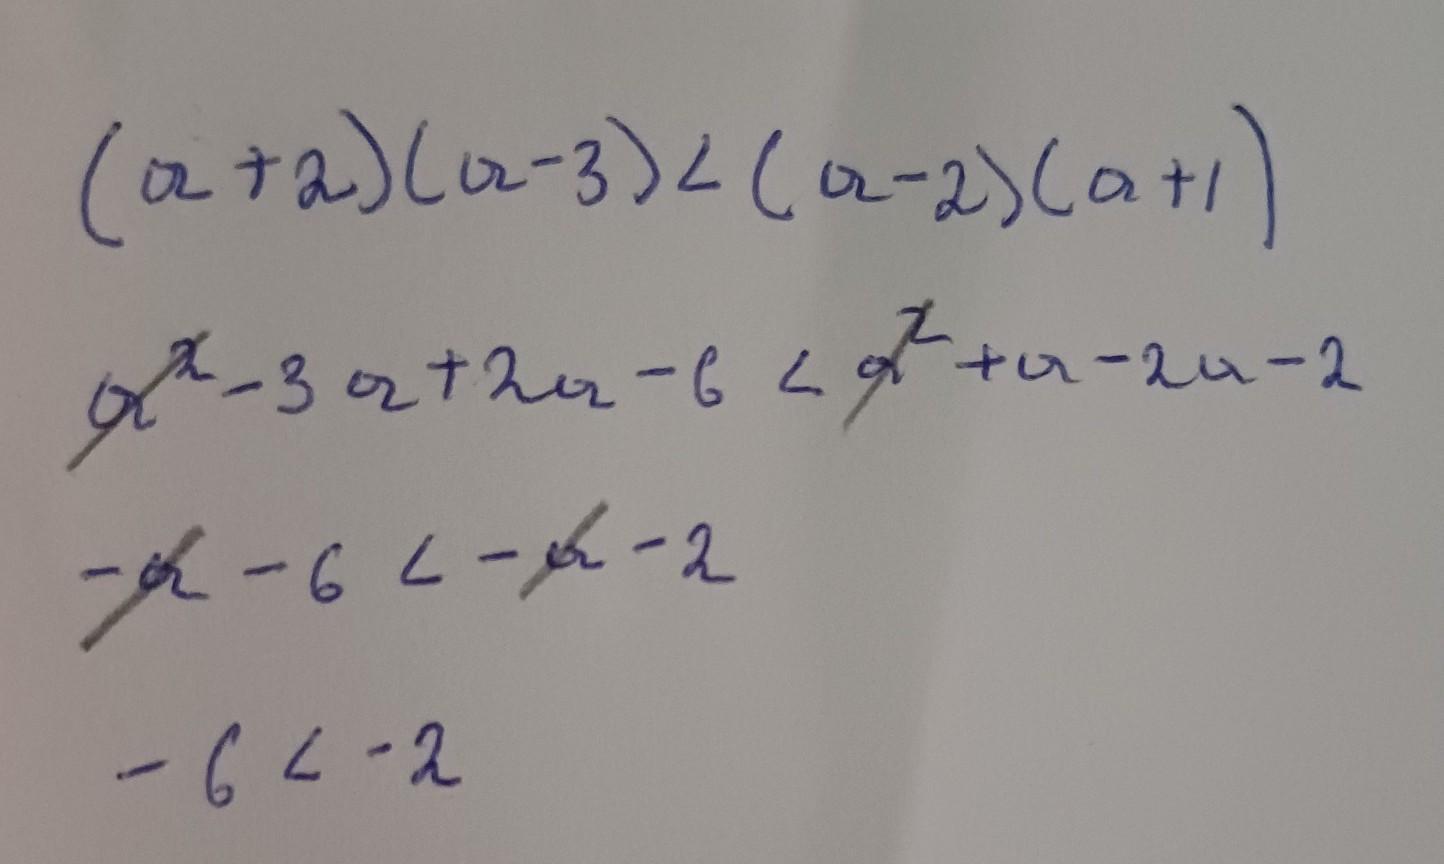 (a+2)(a-3)<(a-2)(a+1)
a²-3a+2a-6<a²+a-2a-2
-a-6<-a-2
-6<-2